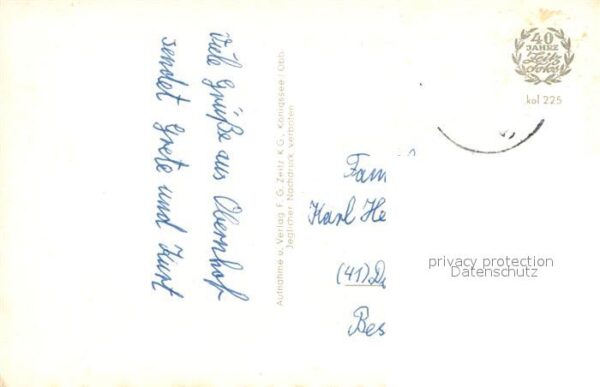 Viele Grüße aus Obernhof
sendet Grete und Kurt
Aufnahme u. Verlag F. G. Zeitz K.G., Königssee / Obb.
Jeglicher Nachdruck verboten
40
JAHRE
Zeitz
Fotos
kol 225
Fam
Karl He
(41) Du
Bes
privacy protection
Datenschutz